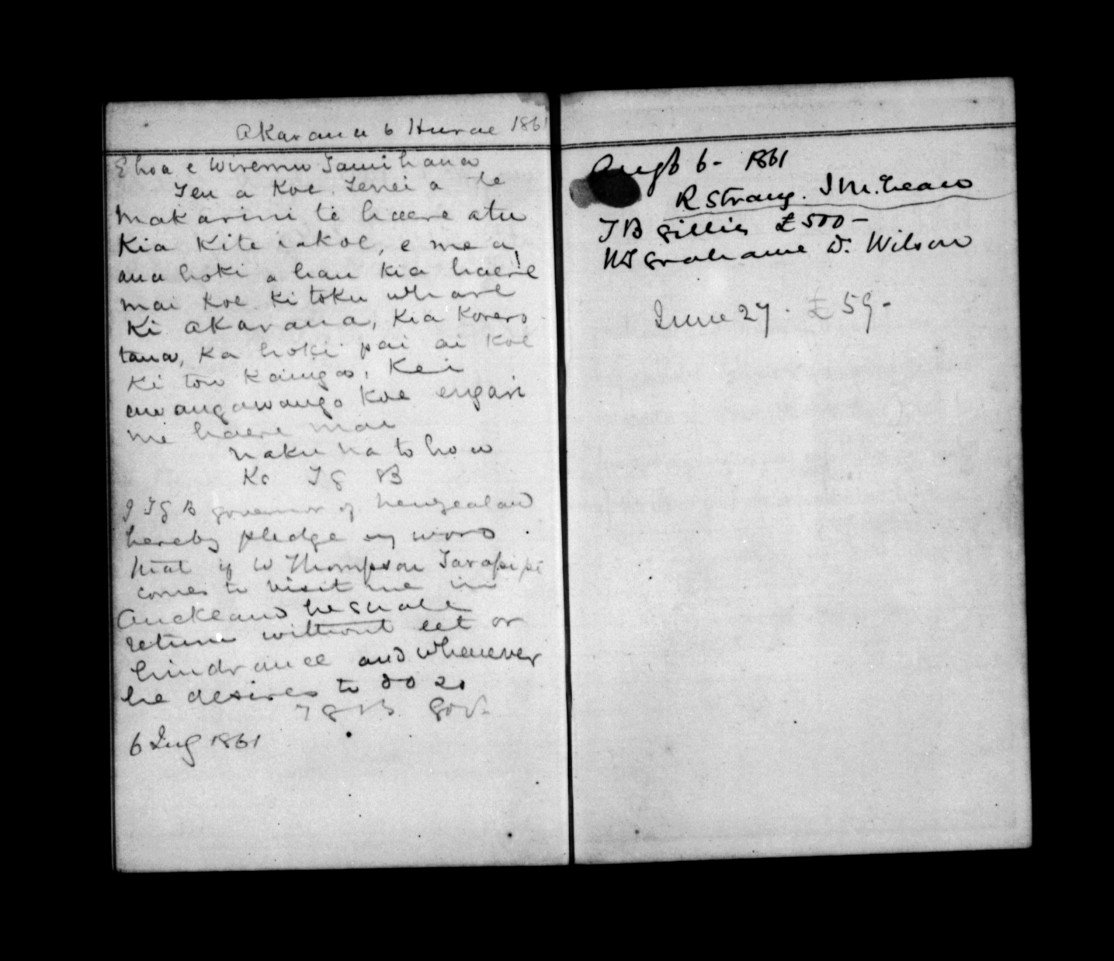 Akarana 6 Hurae 1861
E hoa e Wiremu Tamihana
Ten a Koe. Tenei a Te
Makarini te haere atu
Kia Kite i a koe, e mea
ana hoki a hau kia haere
mai Koe ki toku whare
Ki Akarana, Kia Korero
taua, Ka hoki pai ai Koe
Ki tou Kainga. Kei
awangawanga Koe engari
me haere mai
naku na to hoa
Ko T G B
I T G B governor of Newzealand
hereby pledge my word
that if W Thompson Tarapipi
comes to visit me in
Auckland he shall
return without let or
hindrance and whenever
he desires to do so
T G B Govr
6 July 1861
Augt 6 - 1861
R Strang. J McLean
T B Gillies £500 -
Grahame D. Wilson
June 27. £59 -